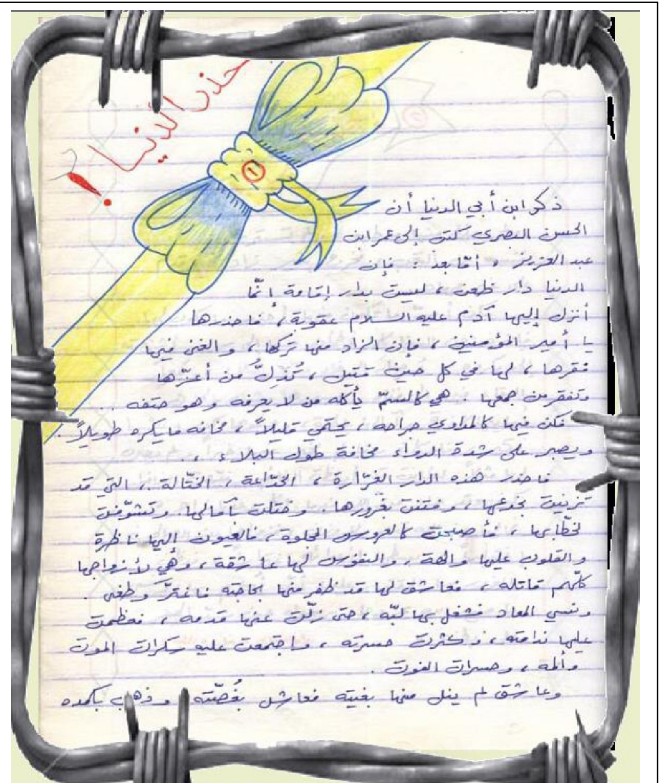 حذر الدنيا !
١
ذكر ابن أبي الدنيا أن
الحسن البصري كتب إلى عمر ابن
عبد العزيز ، أمّا بعد : فإن
الدنيا دار ظعن ، ليست بدار إقامة إنّما
أنزل إليها آدم عليه السلام عقوبة ، فاحذرها
يا أمير المؤمنين ، فإن الزاد منها تركها ، والغنى فيها
فقرها ، لها في كل حين قتيل ، تُذِلُّ من أعزّها
وتفقر من جمعها . هي كالسمّ يأكله من لا يعرفه وهو حتفه ..
فكن فيها كالمداوي جراحه ، يحتمي قليلاً ، مخافة ما يكره طويلاً .
ويصبر على شدة الدواء مخافة طول البلاء ..
فاحذر هذه الدار الغرّارة ، الخدّاعة ، الختّالة ، التي قد
تزينت بخدعها ، وفتنت بغرورها ، وختلت بآمالها وتشوّفت
لخطّابها ، فأصبحت كالعروس الحلوة ، فالعيون إليها ناظرة
والقلوب عليها والهة ، والنفوس لها عاشقة ، وهي لأزواجها
كلّهم قاتله ، فعاشق لها قد ظفر منها بحاجته فاغترّ وطغى .
ونسي المعاد فشغل بها لبّه ، حتى زلّت عنها قدمه ، فعظمت
عليها ندامته ، وكثرت حسرته ، واجتمعت عليه سكرات الموت
وألمه ، وحسرات الفوت .
وعاشق لم ينل منها بغيته فعاش بغُصّته ، وذهب بكمده